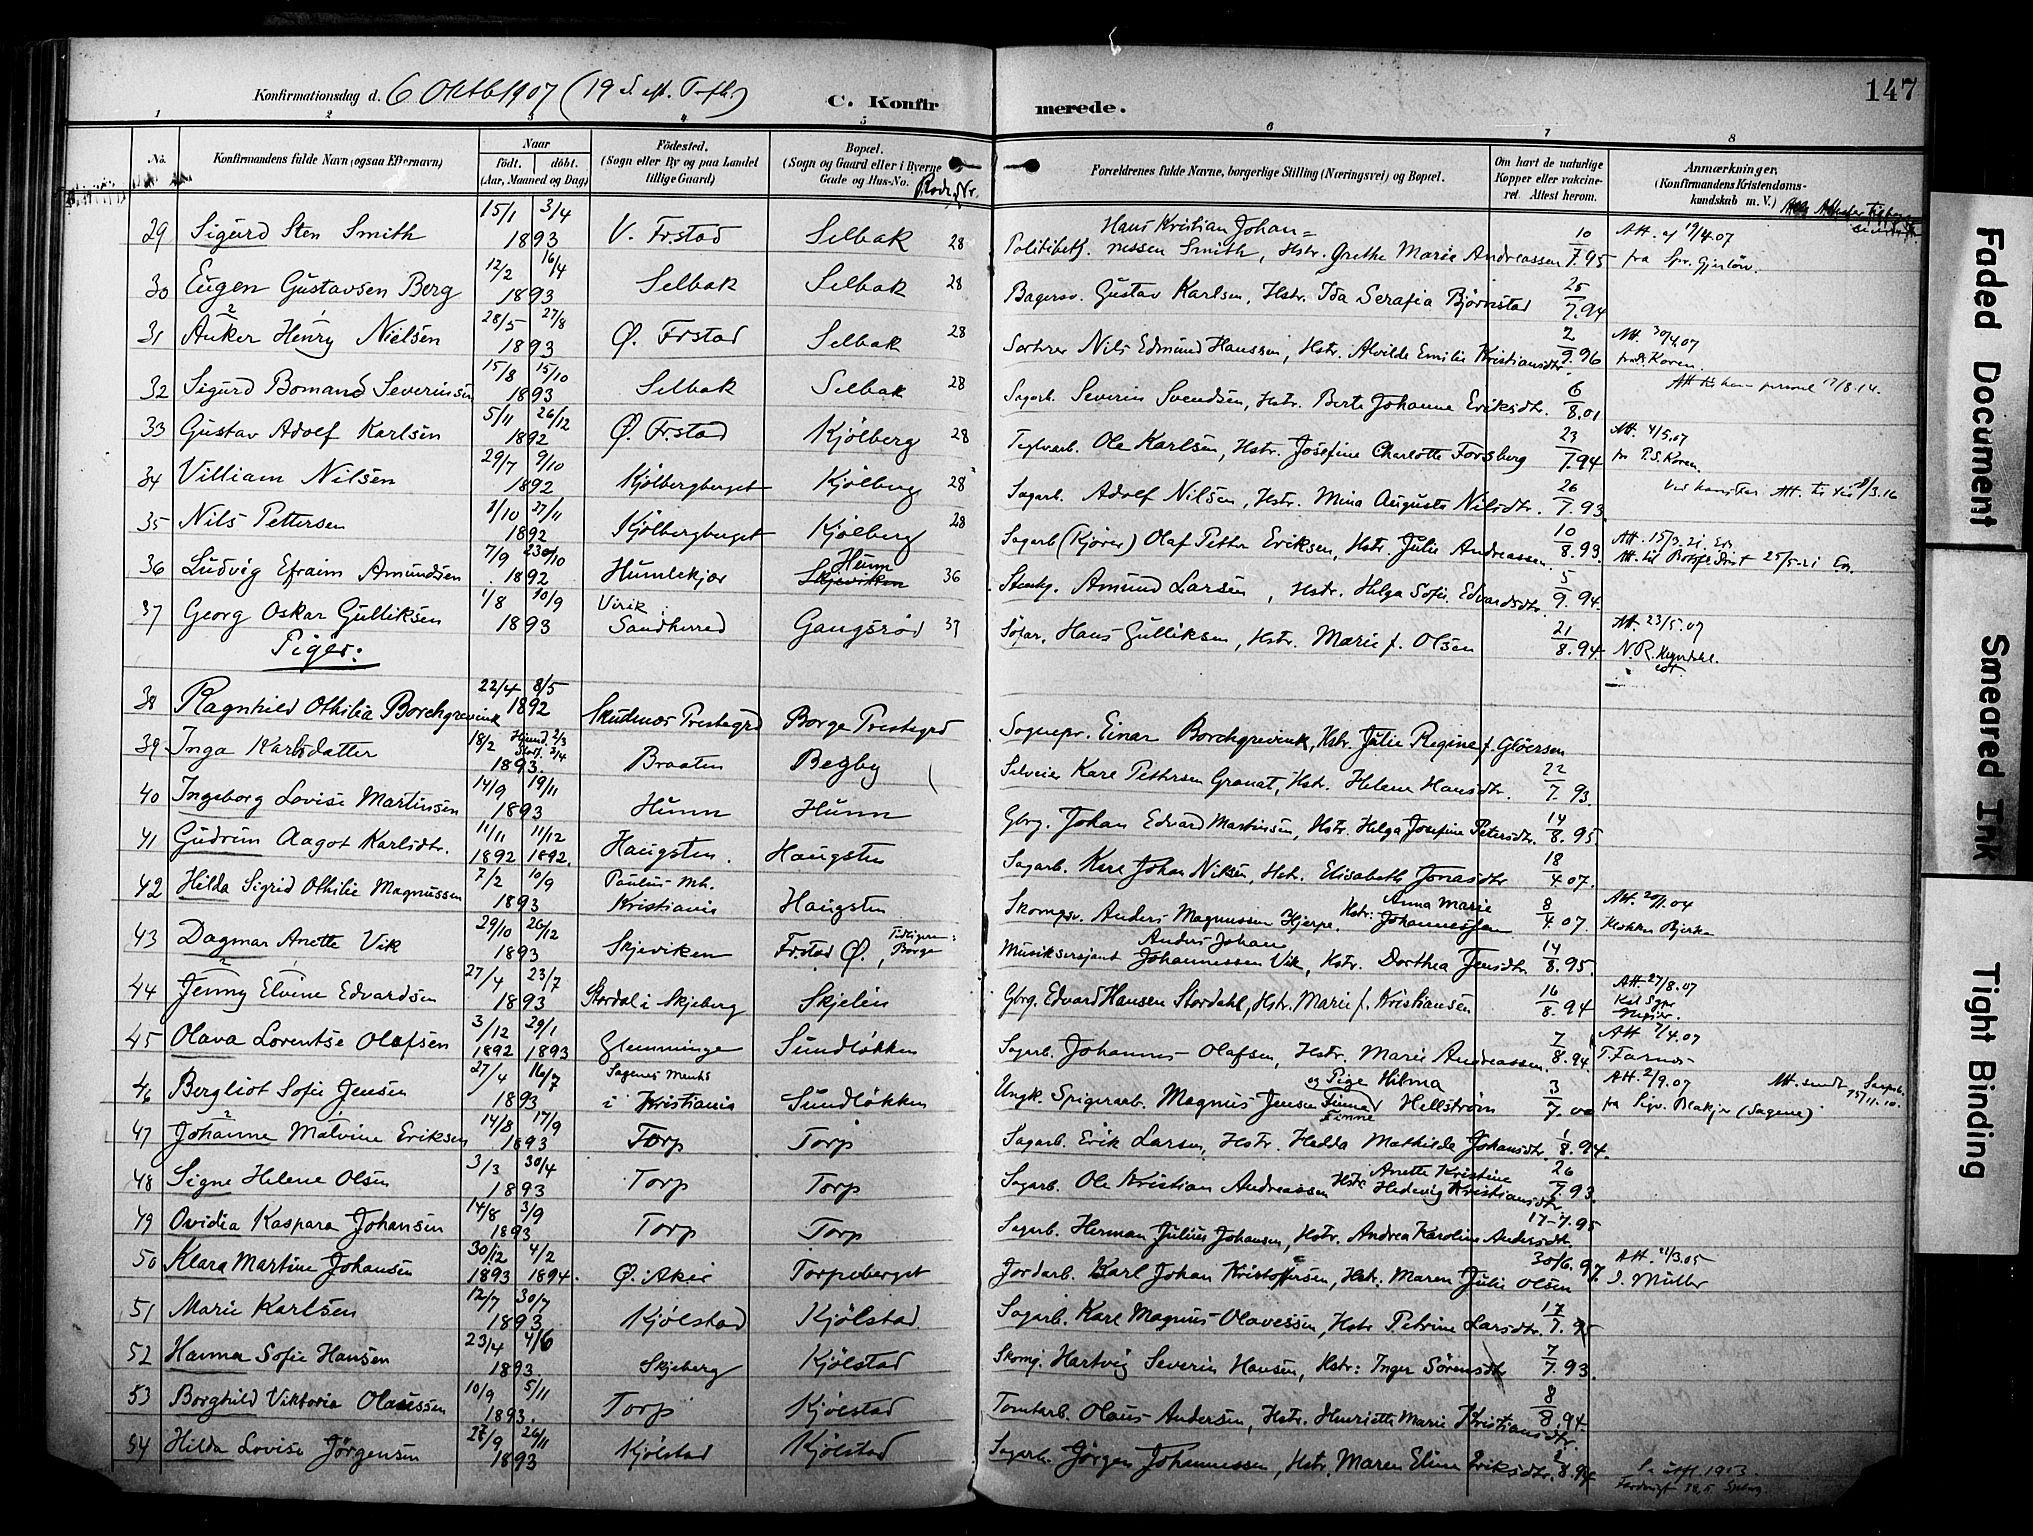 Konfirmationsdag d. 6 Oktb 1907 (19 S. eft. Trefh.)
C. Konfirmerede.
147
1 2 3 4 5 6 7 8
No.
Konfirmandens fulde Navn (ogsaa Efternavn)
Naar
født. døbt.
(Aar, Maaned og Dag)
Fødested.
(Sogn eller By og paa Landet tillige Gaard)
Bopæl.
(Sogn og Gaard eller i Byerne Gade og Hus-No.
Rode Nr.
Forældrenes fulde Navne, borgerlige Stilling (Næringsvei) og Bopæl.
Om havt de naturlige Kopper eller vakcineret. Attest herom.
Anmærkninger,
(Konfirmandens Kristendomskundskab m. V.)
29 Sigurd Sten Smith 15/1 3/4 1893 V. Fr.stad Selbak 28 Politibetj. Hans Kristian Johan=nessen Smith, Hstr. Grethe Marie Andreassen 10/7.95 Att. af 19/4.07 fra Spr. Gjerløw.
30 Eugen Gustavsen Berg 12/2 16/4 1893 Selbak Selbak 28 Bagersv. Gustav Karlsen, Hstr. Ida Serafia Bjørnstad 25/7.94
31 Anker Henry Nielsen 28/5 27/8 1893 Ø. Fr.stad Selbak 28 Sorterer Nils Edmund Hanssen, Hstr. Alvilde Emilie Kristiansdtr. 2/9.96 Att. 30/4.07 Koren.
32 Sigurd Bomand Severinsen 15/8 15/10 1893 Selbak Selbak 28 Sagarb. Severin Svendsen, Hstr. Berte Johanne Eriksdtr. 6/8.01 Att 17/8.14.
33 Gustav Adolf Karlsen 5/11 26/12 1892 Ø. Fr.stad Kjølberg 28 Teglvarb. Ole Karlsen, Hstr. Josefine Charlotte Forsberg 23/7.94 Att. 4/5.07 fra P.S. Koren.
34 Villiam Nilsen 29/7 9/10 1892 Kjølbergberget Kjølberg 28 Sagarb. Adolf Nilsen, Hstr. Mina Augusta Nilsdtr. 26/7.93.
35 Nils Pettersen 1/10 27/11 1892 Kjølbergberget Kjølberg 28 Sagarb (Kjører) Olaf Petter Eriksen, Hstr. Julie Andreassen. 10/8.93 Att. 15/3.21
36 Ludvig Efraim Amundsen 7/9 23/10 1892 Humlekjær Hunn Skjeviken 36 Stenhg. Amund Larsen, Hstr. Helga Sofie Edvardsdtr. 5/9.94. Att. til 25/5-21
37 Georg Oskar Gulliksen 1/8 10/9 1893 Virik Sandherred Gangsrød 37 Sjøfar. Hans Gulliksen, Hstr. Marie f. Olsen 21/8.94 Att. 23/5.07
Piger:
38 Ragnhild Othilia Borchgrevink 22/4 8/5 1892 Skudenes Prestegrd Borge Prestegrd Sognepr. Einar Borchgrevink, Hstr. Julie Regine f. Gløersen
39 Inga Karlsdatter 18/2 Hjemd. 2/3 Stadf. 2/4 1893. Braaten Begby Selveier Karl Pettersen Granat, Hstr. Helene Hansdtr. 22/7.93.
40 Ingeborg Lovise Martinsen 14/9 19/11 1893 Hunn Hunn Gbrg. Johan Edvard Martinsen, Hstr. Helga Josefine Petersdtr. 14/8.95.
41 Gudrun Aagot Karlsdtr. 11/11 1892 11/12 1892. Haugsten. Haugsten Sagarb. Karl Johan Nilsen, Hstr. Elisabeth Jonasdtr 18/4 07.
42 Hilda Sigrid Othilie Magnussen 7/2 10/9 1893 Paulus Mh. Kristiania Haugsten Skomsv. Anders Magnussen Hjerpe. Hstr. Anna Marie Johannessen 8/4 07.
43 Dagmar Anette Vik 29/10 26/12 1893 Skjeviken Fr.stad Ø., Tidligere: Borge Musiksersjant Anders Johan Johannessen Vik, Hstr. Dorthea Jensdtr 14/8.95.
44 Jenny Elvine Edvardsen 27/4 23/7 1893 Stordal i Skjeberg Skjelin Gbrg. Edvard Hansen Stordahl, Hstr. Marie f. Kristiansen 16/8.94 Att. 27/8.07
45 Olava Lorentse Olafsen 3/12 1892 29/1 1893 Glemminge Sundløkken Sagarb. Johannes Olafsen, Hstr. Marie Andreassen. 7/8.94 Att 7/4.07
46 Bergliot Sofie Jensen 27/4 16/7 1893 Sagenes Menhd i Kristiania Sundløkken Ungk. Spigerarb. Magnus Jensen og Pige Hilma Hellstrøm 3/7.00 Att. 2/9.07 fra Sigv. Blakjer (Sagene). Att. sendt Sarpsb. 15/11.10.
47 Johanne Malvine Eriksen 14/8 17/9 1893 Torp Torp Sagarb. Erik Larsen, Hstr. Hedda Mathilde Johansdtr. 1/8.94.
48 Signe Helene Olsen 3/3 30/4 1893 Torp Torp Sagarb. Ole Kristian Andreassen Hstr. Anette Kristine Hedevig Kristiansdtr. 26/7 93.
49 Ovidia Kaspara Johansen 14/8 3/9 1893 Torp Torp Sagarb. Herman Julius Johansen, Hstr. Andrea Karoline Andersdtr. 17-7.95
50 Klara Martine Johansen 30/12 1893 4/2 1894. Ø. Aker Torpeberget Jordarb. Karl Johan Kristoffersen, Hstr. Maren Julie Olsen 30/6.97. Att. 21/3.05 J. Müller
51 Marie Karlsen 12/7 30/7 1893 Kjølstad Kjølstad Sagarb. Karl Magnus Olavessen, Hstr Petrine Larsdtr. 17/7.95
52 Hanna Sofie Hansen 23/4 4/6 1893 Skjeberg Kjølstad Skomg. Hartvig Severin Hansen, Hstr: Inger Sørensdtr 7/7 93.
53 Borghild Viktoria Olaussen 10/9 5/11 1893. Torp Kjølstad Tomtarb. Olaus Andersen, Hstr. Henriette Marie Kristiansdtr. 8/8.94.
54 Hilda Lovise Jørgensen 27/9 26/11 1893 Kjølstad Kjølstad Sagarb. Jørgen Johannessen, Hstr. Maren Eline Eriksdtr. 2/8.94
Faded Document
Smeared Ink
Tight Binding